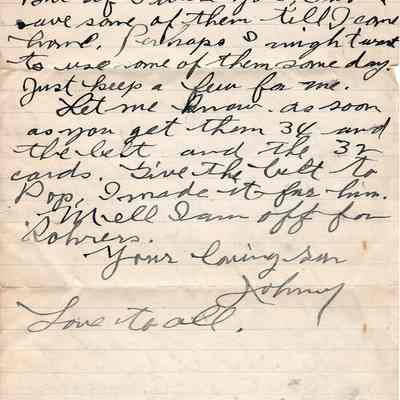 save some of them till I come
home. Perhaps I might want
to use some of them some day.
Just keep a few for me.
Let me know as soon
as you get them 34 and
the belt and the 32
cards. Give the belt to
Pop, I made it for him.
Well I am off for
Rohrers.
Your loving son
Johnny
Love to all.